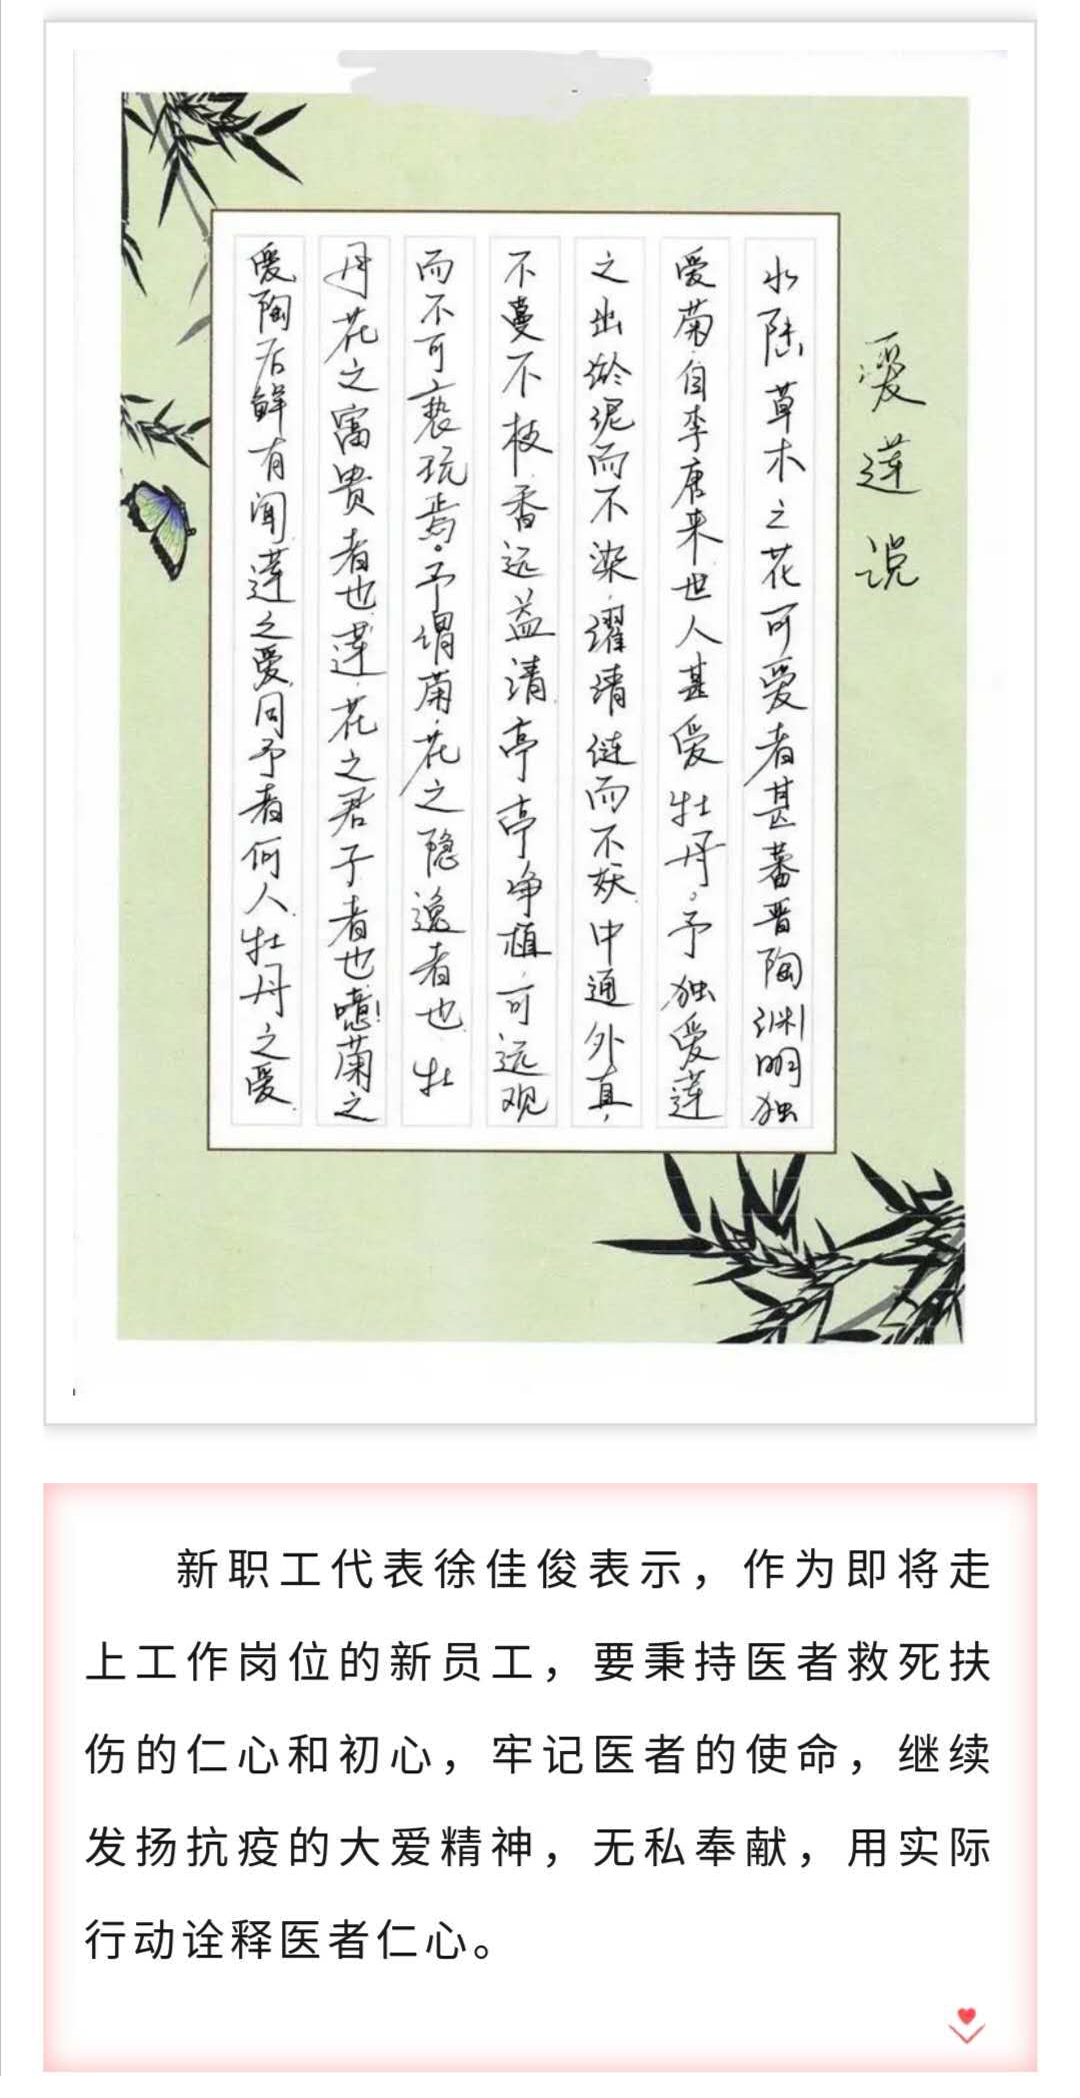 爱莲说
水陆草木之花可爱者甚蕃晋陶渊明独
爱菊.自李唐来.世人甚爱牡丹。予独爱莲
之出淤泥而不染.濯清涟而不妖.中通外直,
不蔓不枝.香远益清.亭亭净植.可远观
而不可亵玩焉。予谓菊.花之隐逸者也.牡
丹.花之富贵者也.莲.花之君子者也.噫!菊之
爱.陶后鲜有闻.莲之爱.同予者何人.牡丹之爱.
新职工代表徐佳俊表示，作为即将走
上工作岗位的新员工，要秉持医者救死扶
伤的仁心和初心，牢记医者的使命，继续
发扬抗疫的大爱精神，无私奉献，用实际
行动诠释医者仁心。